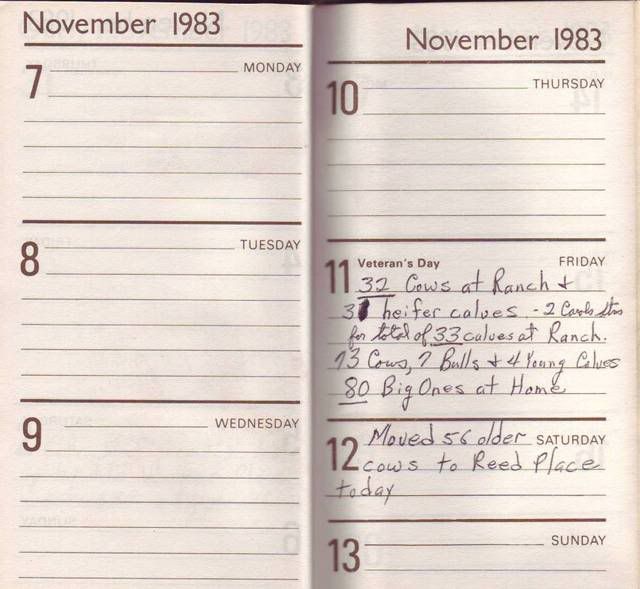 November 1983
7 MONDAY
8 TUESDAY
9 WEDNESDAY
November 1983
10 THURSDAY
11 Veteran's Day FRIDAY
32 Cows at Ranch +
31 heifer calves - 2 Carols
for total of 33 calves at Ranch.
73 Cows, 7 Bulls + 4 Young Calves
80 Big Ones at Home
12 Moved 56 older SATURDAY
cows to Reed Place
today
13 SUNDAY